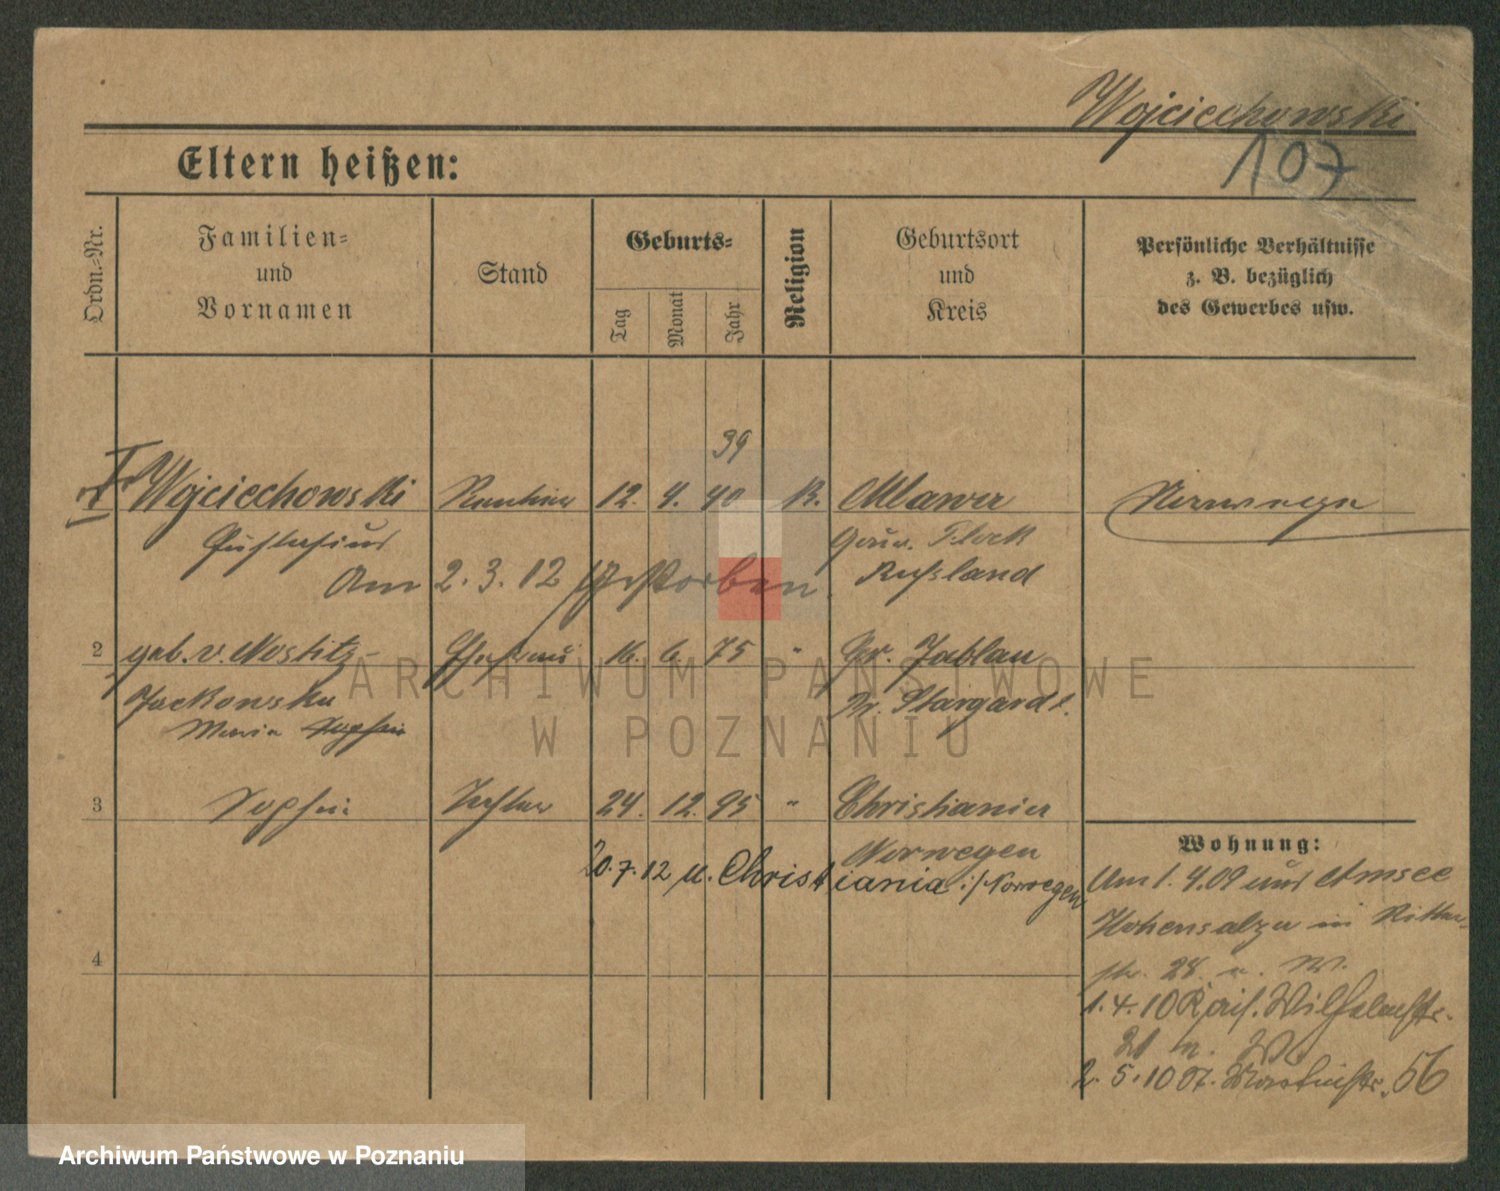 Wojciechowski
107
Eltern heißen:
Ordn.-Nr.
Familien-
und
Vornamen
Stand
Geburts-
Tag
Monat
Jahr
Religion
Geburtsort
und
Kreis
Persönliche Verhältnisse
z. B. bezüglich
des Gewerbes usw.
39
Wojciechowski Rentier 12. 4. 40 K. Mlawa Norwegen
Gustasius Gouv. Plock
Am 2. 3. 12 gestorben. Russland
2 geb. v. Nostitz- Ehefrau 16. 6. 75 " Gr. Jablau
Jackowska Kr. Stargard
Maria Sophie
3 Sophie Tochter 24. 12. 95 " Christiania
Norwegen
20.7.12 n. Christiania i/Norwegen
4
Wohnung:
Am 1. 4.09 aus Amsee
Hohensalza in Ritter-
str. 28
1.4.10 Kais. Wilhelmstr.
21
2.5.10 56
ARCHIWUM PAŃSTWOWE
W POZNANIU
Archiwum Państwowe w Poznaniu